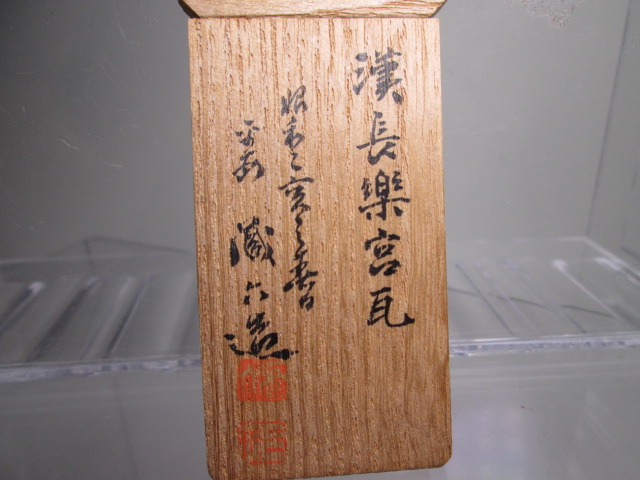 漢長樂宮瓦
昭和乙亥之春日
平安 藏六造